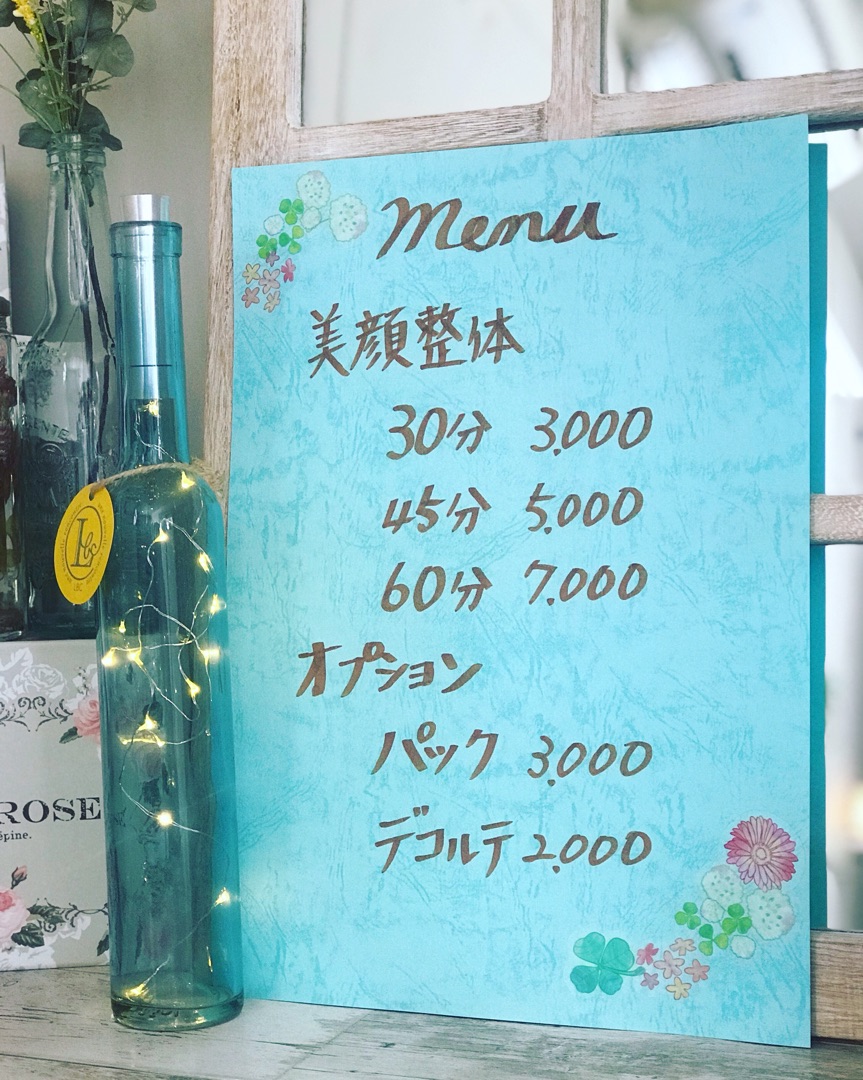 Menu
美顔整体
30分 3,000
45分 5,000
60分 7,000
オプション
パック 3,000
デコルテ 2,000
ROSE
épine.